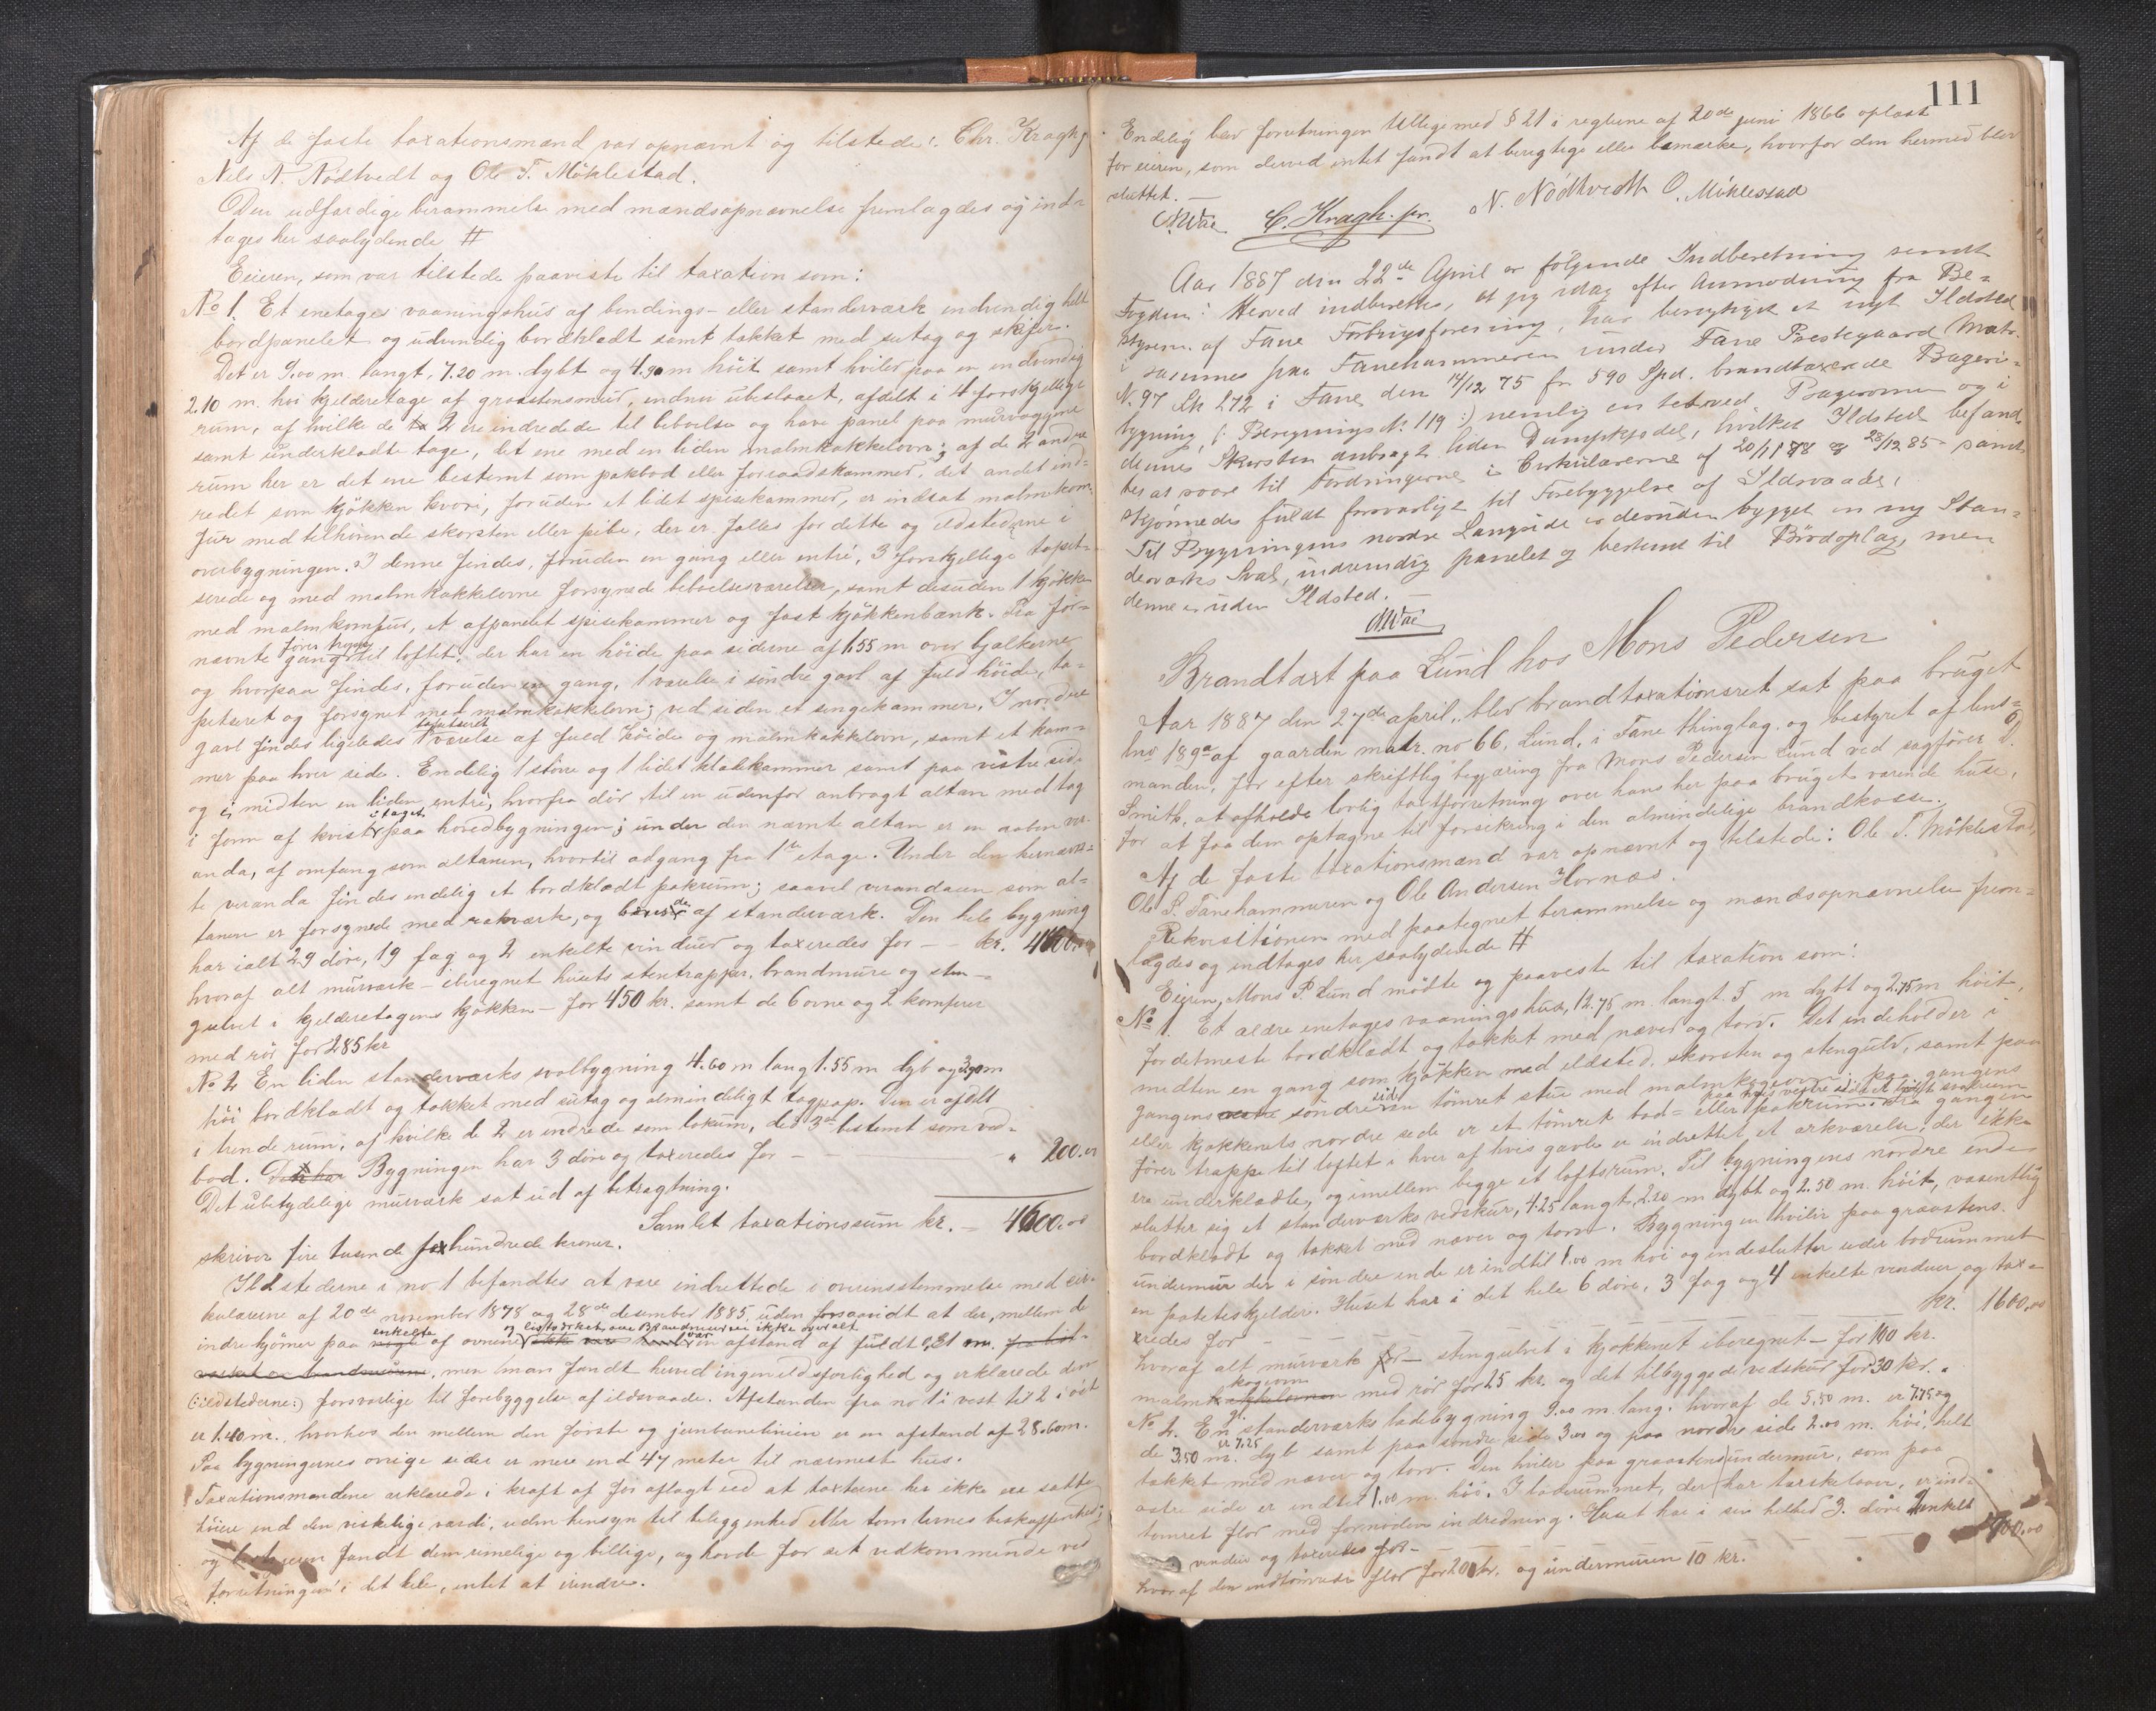 Af de faste taxationsmænd var opnævnt og tilstede: Chr. Kragh jr
Nils N. Nødtvedt og Ole T. Møklestad.
Den udfærdige berammelse med mændsopnævnelse fremlagdes og ind-
tages her saalydende #
Eieren, som var tilstede paaviste til taxation som:
No 1. Et enetages vaaningshus af bindings- eller standerværk indvendig helt
bordpanelet og udvendig bordklædt samt tækket med sutag og skifer.
Det er 9.00 m. langt, 7.20 m. dybt og 4.90 m høit samt hviler paa en indvendig
2.10 m. høi kjelderetage af graastensmur, endnu ubeslaaet, afdelt i 4 forskjellige
rum, af hvilke de 2 ere indredede til beboelse og have panel paa murvæggene
samt underklædte tage, det ene med en liden malmkakkelovn; af de 2 andre
rum her er det ene bestemt som pakbod eller forraadskammer, det andet ind-
redet som kjøkken hvori, foruden et lidet spisekammer, er indsat malmkom-
fur med tilhørende skorsten eller pibe, der er fælles for dette og ildstederne i
overbygningen. I denne findes, foruden en gang eller entré, 3 forskjellige tapet-
serede og med malmkakkelovne forsynede beboelsesværelser, samt desuden 1 kjøkken
med malmkomfur, et afpanelet spisekammer og fast kjøkkenbænk. Fra før-
nævnte gang fører trappe til loftet, der har en høide paa siderne af 1.55 m over bjælkerne
og hvorpaa findes, foruden en gang, 1 værelse i søndre gavl af fuld høide, ta-
petseret og forsynet med malmkakkelovn; ved siden et sengekammer. I nordre
gavl findes ligeledes 1 tapetseret værelse af fuld høide og malmkakkelovn, samt et kam-
mer paa hver side. Endelig 1 større og 1 lidet klædekammer samt paa vestre side
og i midten en liden entré, hvorfra dør til en udenfor anbragt altan med tag
i form af kvist paa hovedbygningen; under den nævnte altan er en aaben ver-
anda, af omfang som altanen, hvortil adgang fra 1ste etage. Under den hernævn-
te veranda findes endelig et bordklædt pakrum; saavel verandaen som al-
tanen er forsynede med rækværk, og af standerværk. Den hele bygning
har ialt 29 døre, 19 fag og 2 enkelte vinduer og taxeredes for — kr. 4400.00
hvoraf alt murværk - iberegnet husets stentrapper, brandmure og sten-
gulvet i kjelderetagens kjøkken - for 450 kr. samt de 6 ovne og 2 komfurer
med rør for 285 kr
No 2 En liden standerværks svalbygning 4.60 m lang 1.55 m dyb og m
høi bordklædt og tækket med sutag og almindeligt tagpap. Den er afdelt
i trende rum, af hvilke de 2 er indrede som lokum, det 3de bestemt som ved-
bod. Bygningen har 3 døre og taxeredes for — „ 200.00
Det ubetydelige murværk sat ud af betragtning.
Samlet taxationssum kr. — 4600.00
skriver fire tusende sexhundrede kroner.
Ildstederne i no 1 befandtes at være indrettede i overensstemmelse med cir-
kulærerne af 20de november 1878 og 28de desember 1885, uden forsaavidt at der, mellem de
indre hjørner paa enkelte af ovnene og listværket over Brandmuren ikke overalt var en afstand af fuldt 0,31 m.
, men man fandt herved ingen ildsfarlighed og erklærede dem
(: ildstederne :) forsvarlige til forebyggelse af ildsvaade. Afstanden fra no 1 i vest til 2 i øst
er 1.40 m. hvorhos den mellem den første og jernbanelinien er en afstand af 28.60 m.
Paa bygningernes øvrige sider er mere end 47 meter til nærmest hus.
Taxationsmændene erklærede i kraft af før aflagt eed at taxterne her ikke ere satte
høiere end den virkelige værdi, uden hensyn til beliggenhed eller tomternes beskaffenhed;
og fandt dem rimelige og billige, og havde for sit vedkommende ved
forretningen i det hele, intet at erindre.
111
Endelig blev forretningen tillige med § 21 i reglerne af 20de juni 1866 oplæst
for eieren, som derved intet fandt at berigtige eller bemærke, hvorfor den hermed blev
sluttet.—
C. Kragh. jr. N. Nødtvedt O. Møklestad
Aar 1887 den 22de April er følgende Indberetning sendt
Fogden: Herved indberettes, at jeg idag efter Anmodning fra Be-
styreren af Fane Forbrugsforening, har besigtiget et nyt Ildsted
i sammes paa Fanehammeren under Fane Præstegaard Matr.
N. 97 Lb 272 i Fane den 14/12 75 for 590 Spd. brandtaxerede Bageri-
bygning, (: Bevegnings No. 119 :) nemlig en tet ved Bagerovnen og i
dennes Skorsten anbragt liden Dampkjedel, hvilket Ildsted befand-
tes at svare til Fordringerne i Cirkulærerne af 20/11 78 og 28/12 85 samt
skjønnedes fuldt forsvarligt til Forebyggelse af Ildsvaade.
Til Bygningens nordre Langside er desuden bygget en ny Stan-
derværks Sval, indvendig panelet og bestemt til Brødoplag, men
denne er uden Ildsted. —
Brandtaxt paa Lund hos Mons Pedersen
Aar 1887 den 27de april, blev brandtaxationsret sat paa bruget
lno 189a af gaarden matr. no 66, Lund, i Fane thinglag, og bestyret af lens-
manden, for efter skriftlig begjæring fra Mons Pedersen Lund ved sagfører O.
Smith, at afholde lovlig taxtforretning over hans her paa bruget værende huse,
for at faa dem optagne til forsikring i den almindelige brandkasse.
Af de faste taxationsmænd var opnævnt og tilstede: Ole T. Møklestad,
Ole S. Fanehammeren og Ole Andersen Hornæs.
Rekvisitionen med paategnet berammelse og mændsopnævnelse frem-
lagdes og indtages her saalydende #
Eieren, Mons P. Lund mødte og paaviste til taxation som:
No 1. Et ældre enetages vaaningshus, 12.75 m. langt 5 m dybt og 2.75 m høit,
for detmeste bordklædt og tækket med næver og torv. Det indeholder i
midten en gang som kjøkken med ildsted, skorsten og stengulv, samt paa
gangens søndre side en tømret stue med malmkogeovn; paa gangens
eller kjøkkenets nordre side er et tømret bod- eller pakrum. Fra gangen
fører trappe til loftet i hver af hvis gavle er indrettet et arkværelse, der ikke
ere underklædte, og imellem begge et loftsrum. Til bygningens nordre ende
slutter sig et standerværks vedskur, 4.25 langt, 2.20 m dybt og 2.50 m. høit, væsentlig
bordklædt og tækket med næver og torv. Bygningen hviler paa graastens
undermur der i søndre ende er indtil 1.00 m høi og indeslutter under bodrummet
en poteteskjelder. Huset har i det hele 6 døre, 3 fag og 4 enkelte vinduer og tax-
eredes for — kr. 1600.00
hvoraf alt murværk — stengulvet i kjøkkenet iberegnet — for 100 kr.
malmkogeovn med rør for 25 kr. og det tilbyggede vedskur for 30 kr.
No 2. En gl. standerværks ladebygning 9.00 m lang, hvoraf de 5.50 m. er 7.75 og
de 3.50 m. er 7.25 dyb samt paa søndre side 3.00 og paa nordre side 2.00 m. høi, helt
tækket med næver og torv. Den hviler paa graastens undermur, som paa
østre side er indtil 1.00 m. høi. I laderummet, der har tærskelaave, er ind-
tømret flor med fornøden indredning. Huset har i sin helhed 3 døre enkelt
vindue og taxeredes for — 700.00
hvoraf den indtømrede flor for 200 kr. og undermuren 10 kr.